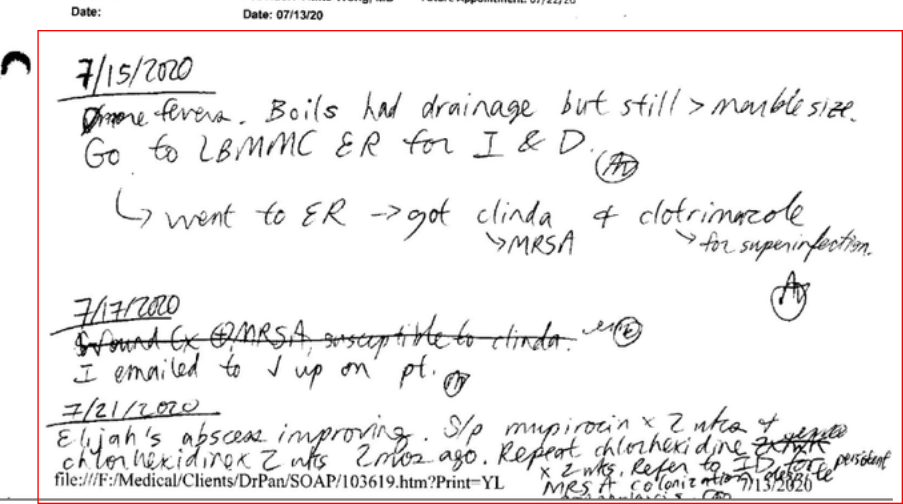 Date:
Date: 07/13/20
7/15/2020
more fevers. Boils had drainage but still > marble size.
Go to LBMMC ER for I & D.
↳ went to ER → got clinda & clotrimazole
↘ MRSA ↘ for superinfection.
7/17/2020
Wound Cx ⊕ MRSA, susceptible to clinda.
I emailed to √ up on pt.
7/21/2020
Elijah's abscess improving. S/p mupirocin x 2 wks &
chlorhexidine x 2 wks 2 mos ago. Repeat chlorhexidine
x 2 wks. Refer to ID for persistent
file:///F:/Medical/Clients/DrPan/SOAP/103619.htm?Print=YL
MRSA colonization despite 7/13/2020